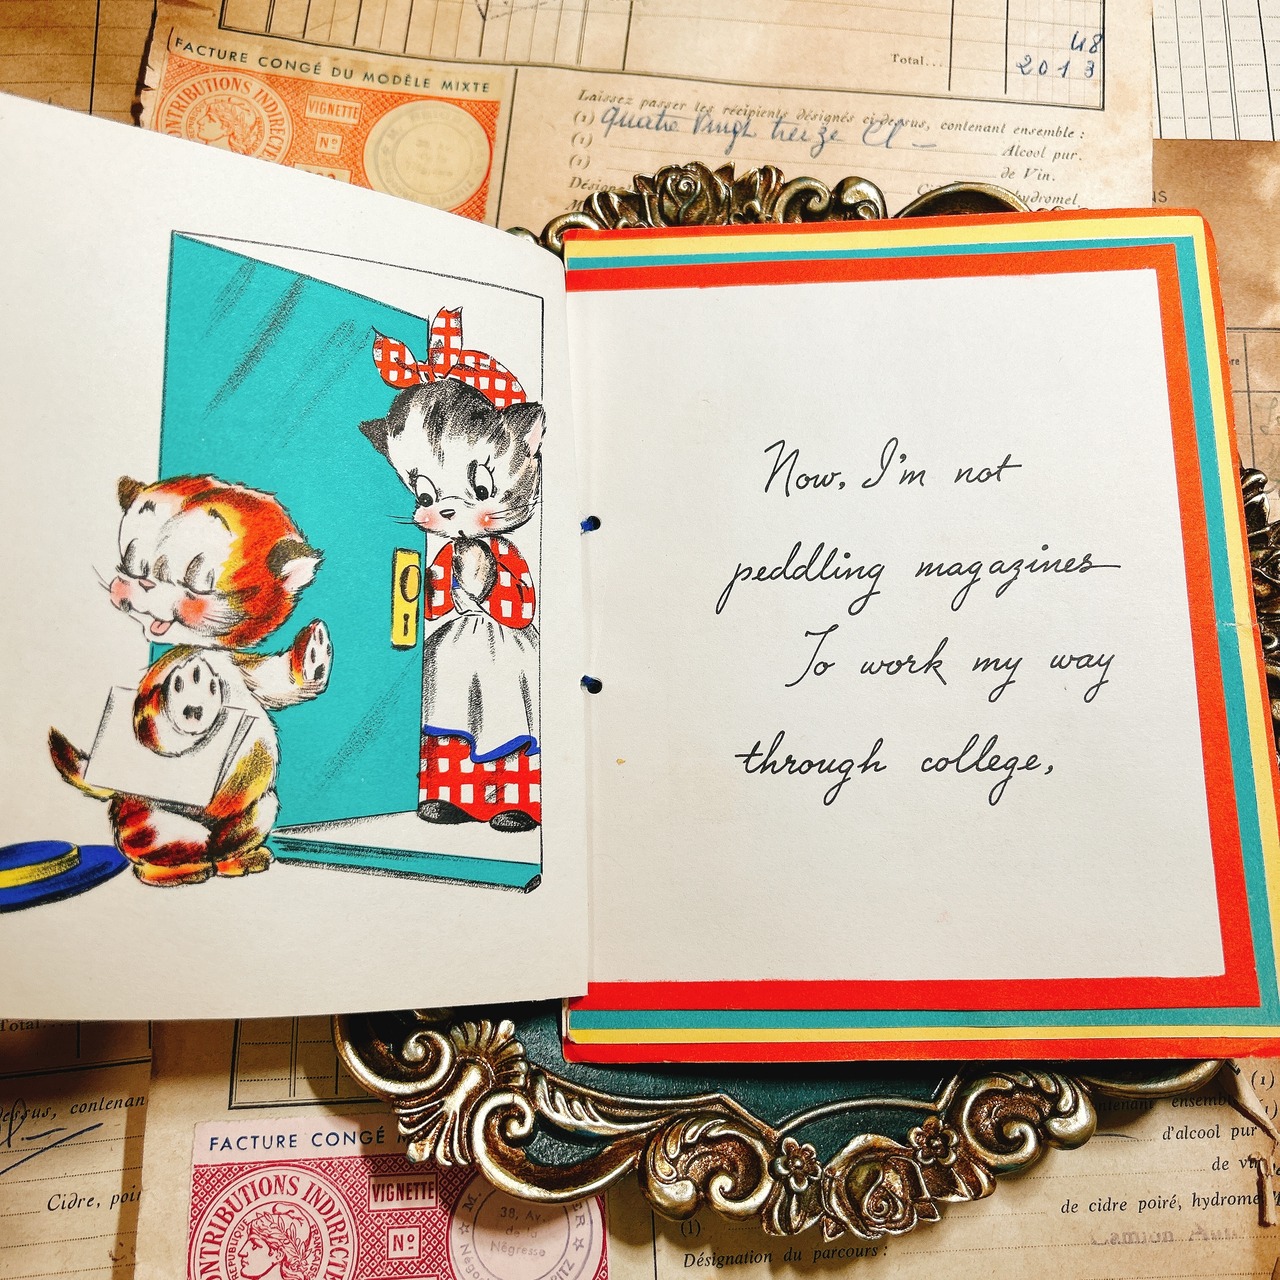 48
Total...
2013
FACTURE CONGÉ DU MODÈLE MIXTE
CONTRIBUTIONS INDIRECTES
VIGNETTE
Nº
Laissez passer les récipients désignés ci-dessus, contenant ensemble :
(1) quatre vingt treize
(1) Alcool pur.
(1) de Vin.
hydromel.
Now, I'm not
peddling magazines
To work my way
through college,
Total...
contenant
Cidre, poi
FACTURE CONGÉ
CONTRIBUTIONS INDIRECTES
RÉPUBLIQUE FRANÇAISE
VIGNETTE
Nº
38, Av.
de la
Négresse
(1)
ensemble
d'alcool pur
de vin
de cidre poiré, hydromel
(1)
Désignation du parcours :